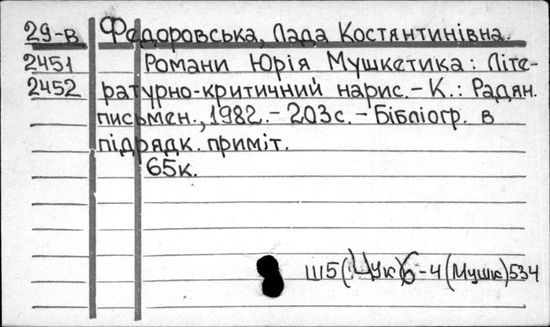 29-в Федоровська, Лада Костянтинівна.
2451 Романи Юрія Мушкетика: Літе-
2452 ратурно-критичний нарис.-К.: Радян.
письмен., 1982.-203с.-Бібліогр. в
підрядк. приміт.
65к.
Ш5(4Ук)6-4(Мушк)534